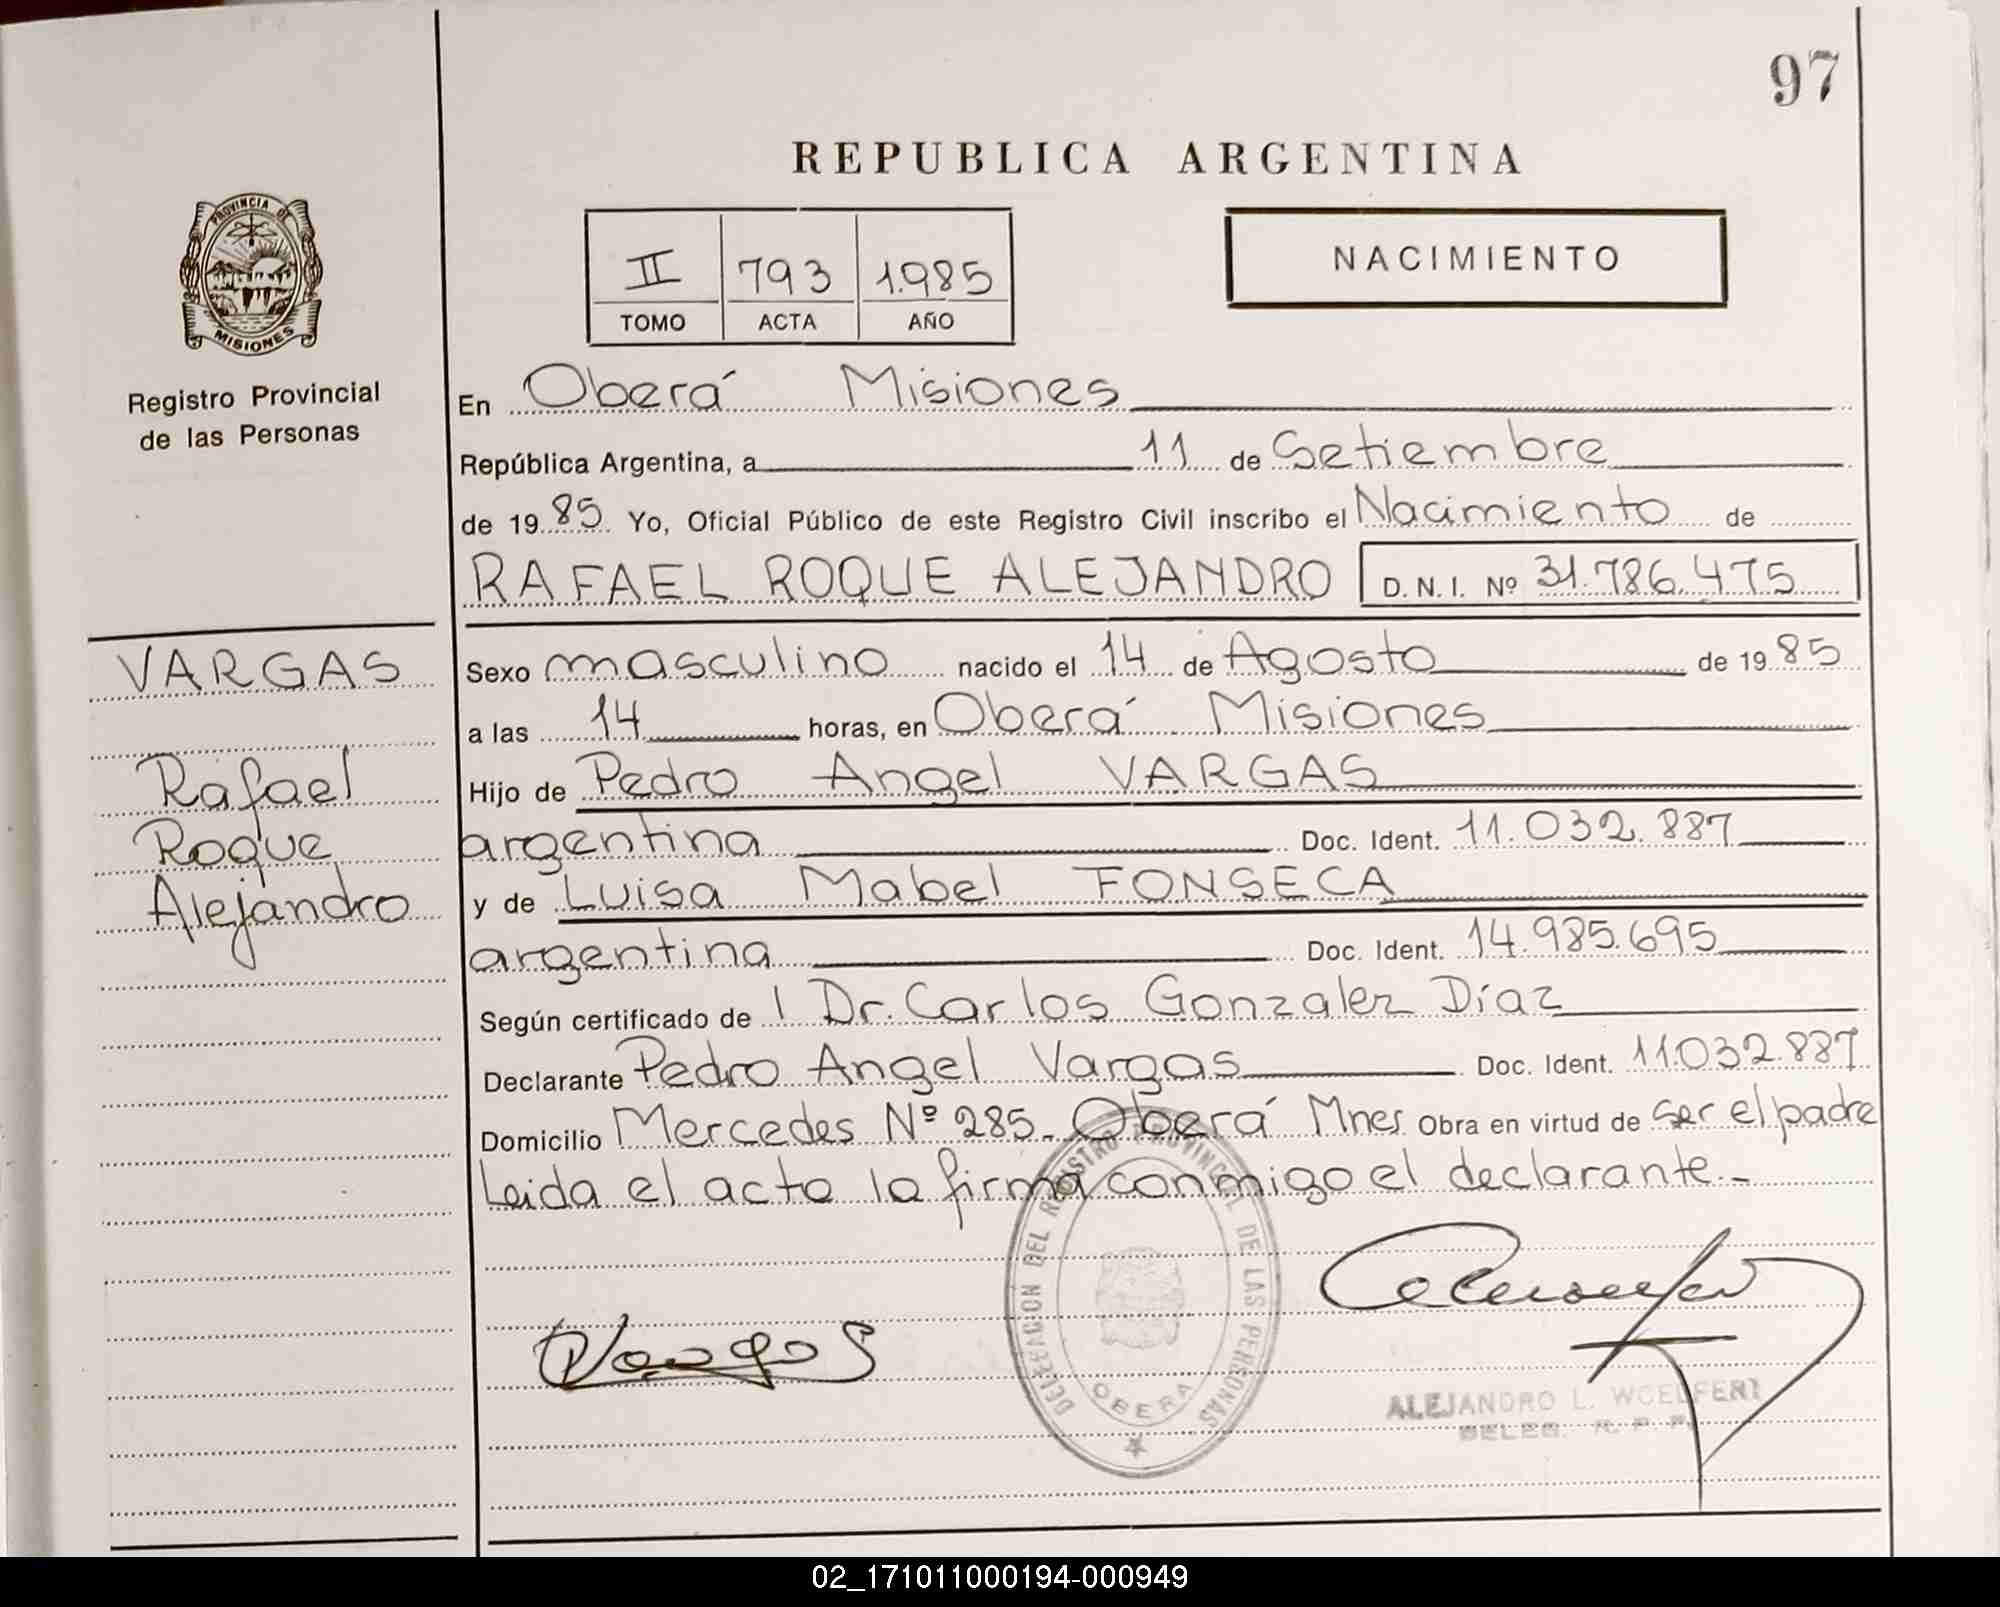 97
REPUBLICA ARGENTINA
PROVINCIA DE
MISIONES
Registro Provincial
de las Personas
II 793 1.985
TOMO ACTA AÑO
NACIMIENTO
En Oberá Misiones
República Argentina, a 11 de Setiembre
de 1985 Yo, Oficial Público de este Registro Civil inscribo el Nacimiento de
RAFAEL ROQUE ALEJANDRO D.N.I. Nº 31.786.475
VARGAS
Rafael
Roque
Alejandro
Sexo masculino nacido el 14 de Agosto de 1985
a las 14 horas, en Oberá Misiones
Hijo de Pedro Angel VARGAS
argentina Doc. Ident. 11.032.887
y de Luisa Mabel FONSECA
argentina Doc. Ident. 14.985.695
Según certificado de l Dr. Carlos Gonzalez Díaz
Declarante Pedro Angel Vargas Doc. Ident. 11.032.887
Domicilio Mercedes Nº 285. Oberá Mnes Obra en virtud de ser el padre
Leida el acta la firma conmigo el declarante.-
DELEGACION DEL REGISTRO PROVINCIAL DE LAS PERSONAS
OBERA
PVargas
ALEJANDRO L. WOELFERT
DELEG. R. P. P.
02_171011000194-000949